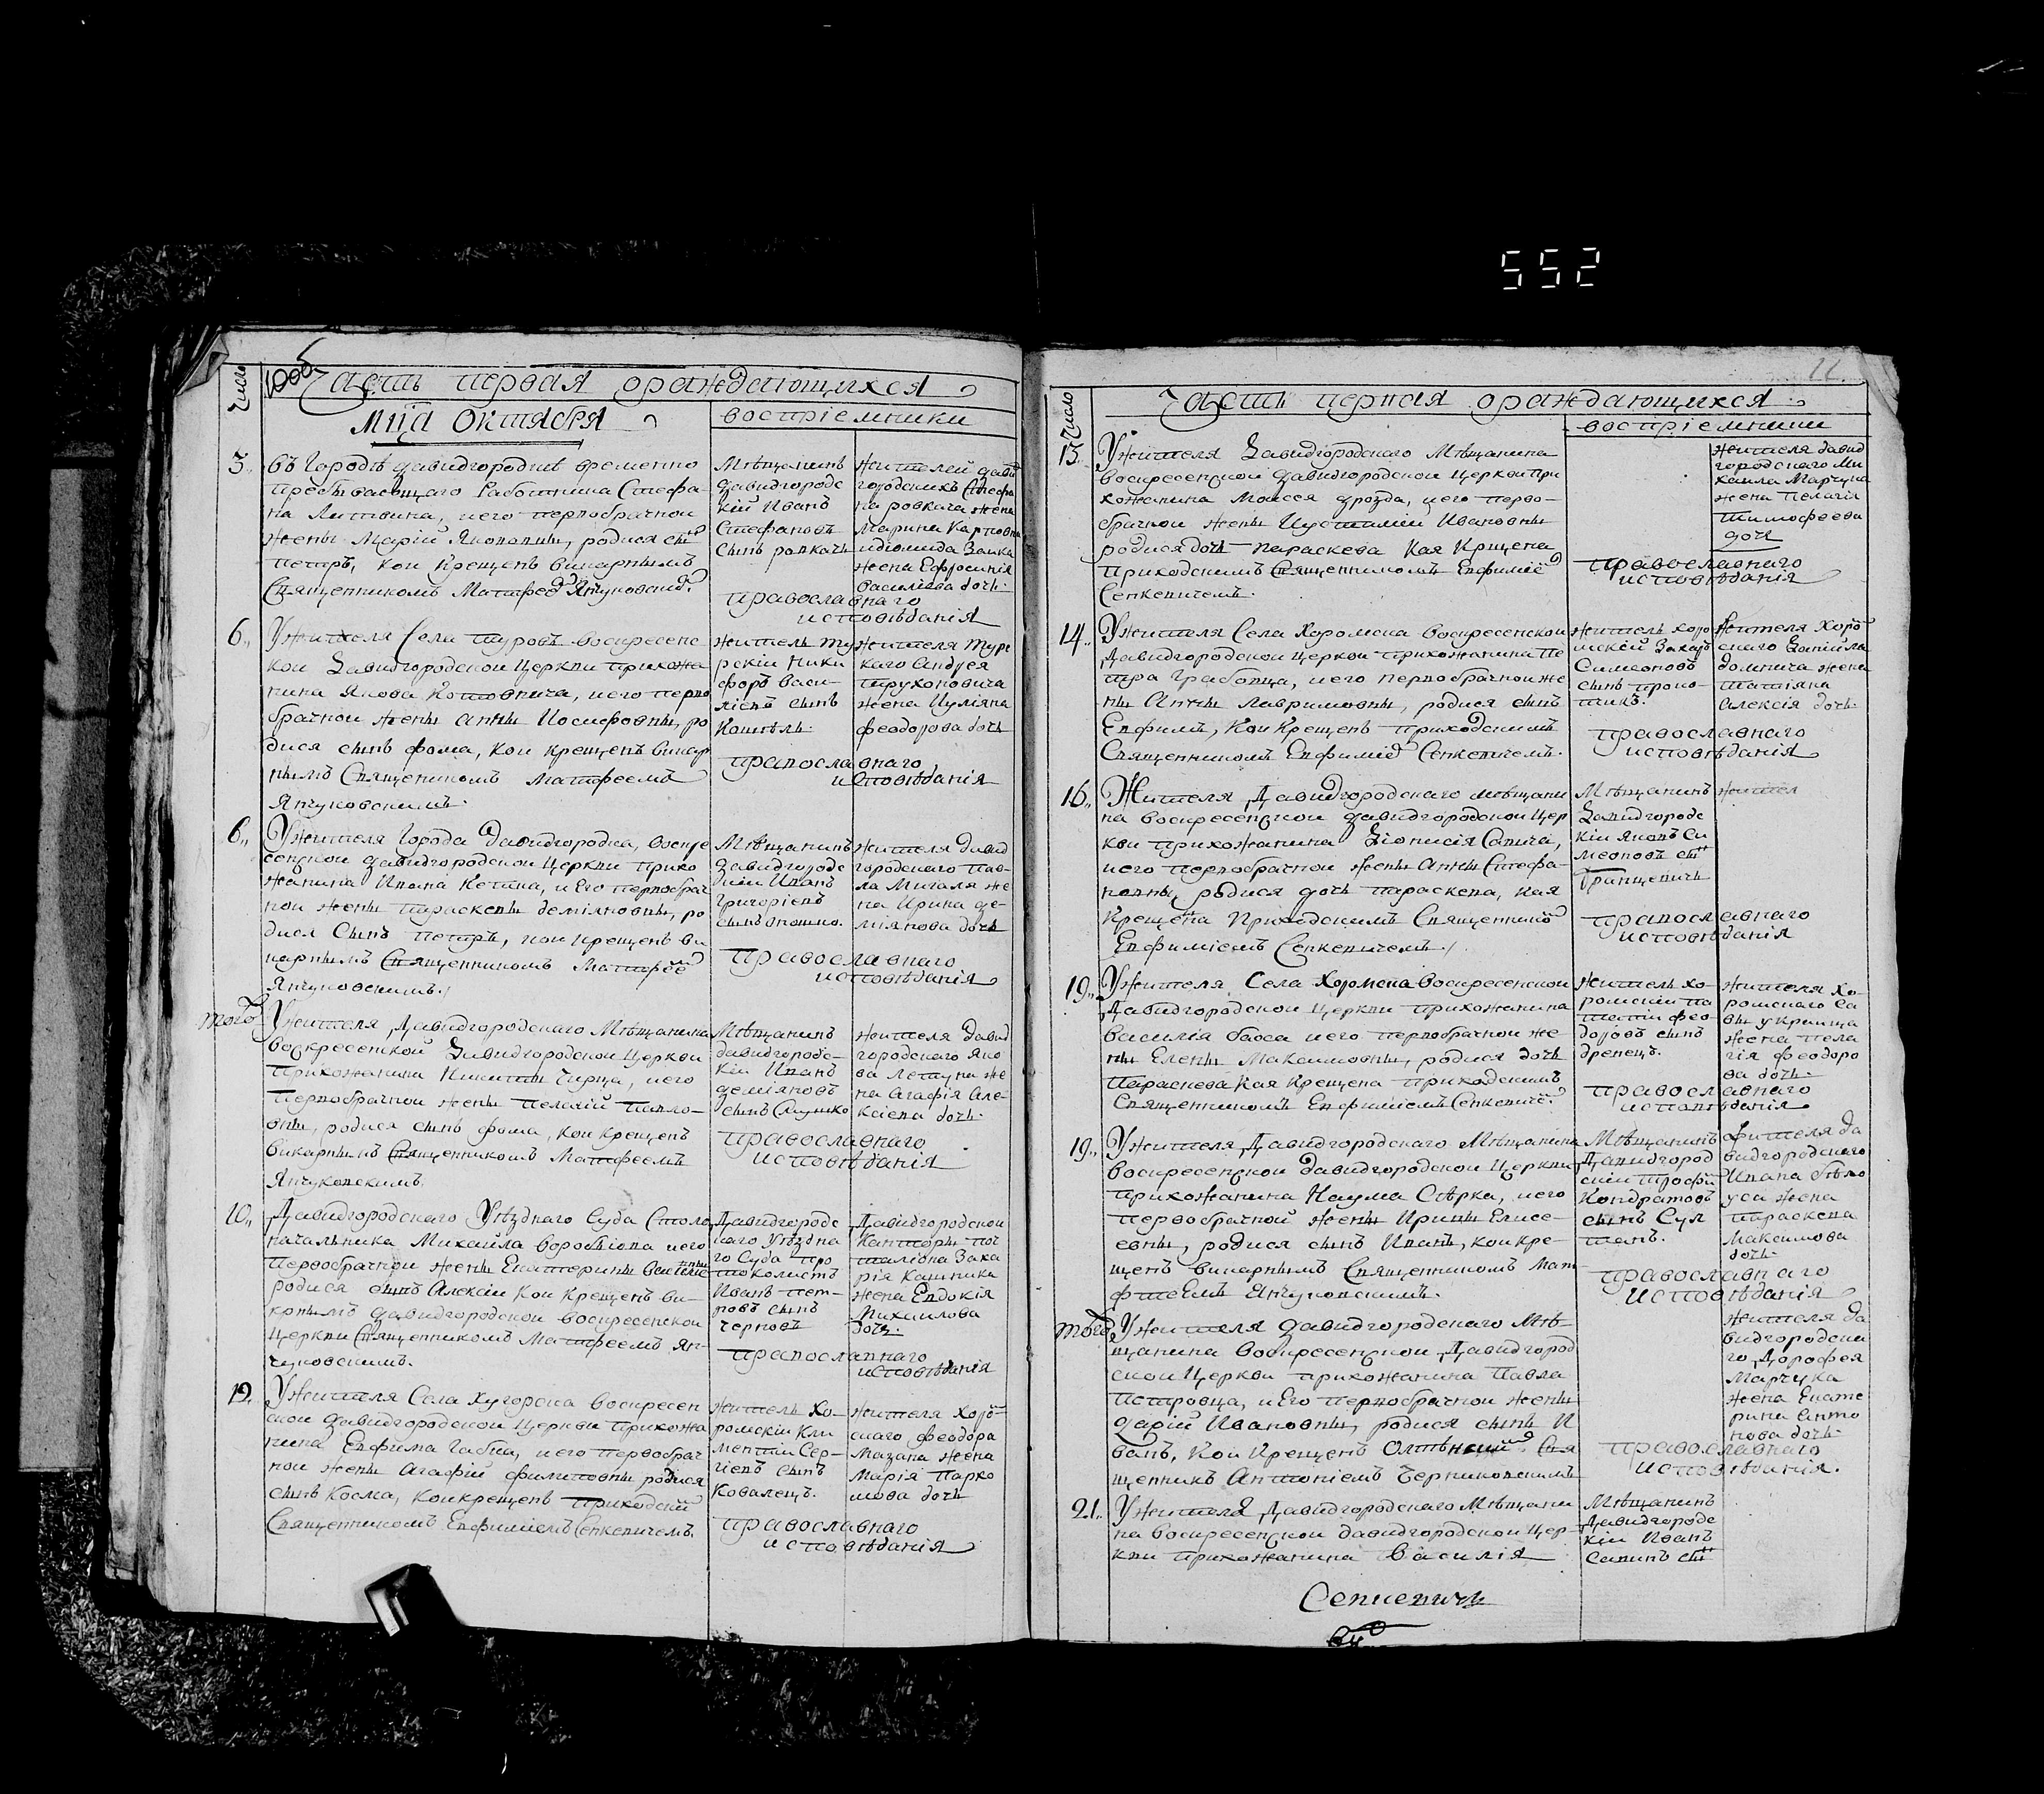 552
Число
Часть первая о раждающихся
Мца Октября
воспріемники
3.
въ Городѣ Давидгородкѣ временно
пребывающаго Работника Стефа-
на Литвина, и его первобрачной
жены Марій Якововны, родися сынъ
Петръ, кои Крещенъ викарнымъ
Священникомъ Матфеемъ Янчуковскимъ.
Мѣщанинъ
Давидгородс
кій Иванъ
Стефановъ
сынъ
Жителей давид
городскихъ Стефа
на ровкача жена
Марина Карповна
жена Ефросинія
Василіева дочь.
православнаго
исповѣданія
6.
Ужителя Села Туровъ воскресенс
кои Давидгородской Церкви прихожа
нина Якова Котовича, и его перво
брачной жены Анны Иосифовны, ро
дися сынъ фома, Кои крещенъ викар
нымъ Священникомъ Матфеемъ
Янчуковскимъ.
житель Ту
рскіи Ники
форъ Васи-
ліевъ сынъ
Кошель.
Жителя Туре
каго Андрея
Трухоновича
жена Иуліяна
феодорова дочь
православнаго
исповѣданія
6.
Ужителя Города Давидгородка, воскре
сенской Давидгородской Церкви прихо
жанина Ивана Кетина, и Его первобрач
нои жены Параскевы деміяновны, ро
дися Сынъ Петръ, кои крещенъ ви
карнымъ Священникомъ Матфеемъ
Янчуковскимъ.
Мѣщанинъ
Давидгородс
кіи Иванъ
Григоріевъ
сынъ
жителя давид
городского Пав-
ла Мигаля же
на Ирина де-
міянова дочь
православнаго
исповѣданія
того
Ужителя Давидгородского Мѣщанина
воскресенской Давидгородской Церкви
Прихожанина Никиты Чирца, и его
Первобрачной жены Пелагій Павло-
вны, родися сынъ фома, кои крещенъ
викарнымъ Священникомъ Матфеемъ
Янчуковскимъ.
Мѣщанинъ
давидгородс-
кіи Иванъ
деміяновъ
сынъ
жителя Давид
городскаго Яко
ва Летуна же
на Агафія Але-
ксіева дочь.
православнаго
исповѣданія
10.
Давидгородского Уѣзднаго Суда Столо
начальника Михайла Воробіова и его
Первобрачной жены Екатерины
родися сынъ Алексій Кои Крещенъ ви-
карнымъ Давидгородской воскресенской
Церкви Священникомъ Матфеемъ Ян-
чуковскимъ.
Давидгородс
каго Уѣздна
го Суда Про
токолистъ
Иванъ Пет-
ровъ сынъ
черновъ
Давидгородской
Канторы поч
таліона Заха
рія Кашника
жена Евдокія
Михаилова
дочь.
православнаго
исповѣданія
12.
Ужителя Села Хугорска воскресен
ской Давидгородской Церкви Прихожа
нина Евфима Габца, и его первобрач
нои жены Агафій филиповны родися
сынъ Косма, кои крещенъ Приходскимъ
Священникомъ Евфиміемъ Сенкевичемъ.
житель Хо-
ромскіи Кли
ментіи Сер-
гіевъ сынъ
Ковалецъ.
жителя Хоро-
скаго феодора
Мазана жена
Марія Пархо
мова дочь
православнаго
исповѣданія
11
Число
Часть первая о раждающихся
воспріемники
13.
Ужителя Давидгородского Мѣщанина
воскресенской Давидгородской Церкви При
хожанина Моисея дрозда, и его перво-
брачной жены Иустиміи Ивановны
родися дочь Параскева Кая Крщена
Приходскимъ Священникомъ Евфиміемъ
Сенкевичемъ.
жителя давид
городскаго Ми
хаила Марчука
жена Пелагія
Тимофеева
дочь
православнаго
исповѣданія
14.
Ужителя Села Хоромска воскресенской
Давидгородской Церкви прихожанина Пе
тра Грабовца, и его первобрачной же
ны Анны Лавримовны, родися сынъ
Евфимъ, Кои Крещенъ приходскимъ
Священникомъ Евфиміемъ Сенкевичемъ.
житель Хоро
мскіи Захаръ
Симеоновъ
сынъ
жителя Хоро
скаго Даніила
домнича жена
Татіяна
Алексія дочь.
православнаго
исповѣданія
16.
Жителя Давидгородского мѣщани
на воскресенской Давидгородской Цер
кви прихожанина Діонисія Савича,
и его первобрачной жены Анны Стефа-
новны, родися дочь Параскева, кая
Крещена Приходскимъ Священникомъ
Евфиміемъ Сенкевичемъ.
Мѣщанинъ
Давидгородс
кіи Яковъ Си
меоновъ сынъ
Гранцевичъ
жител
православнаго
исповѣданія
19.
Ужителя Села Хоромска воскресенской
Давидгородской Церкви прихожанина
Василія баса и его первобрачной же
ны Елены Максимовны, родися дочь
Параскева Кая Крещена приходскимъ
Священникомъ Евфиміемъ Сенкевичемъ.
житель хо-
ромскіи Па
фео-
доровъ сынъ
дренецъ.
жителя хо-
ромскаго Са
вы
жена Пела
гія Феодоро
ва дочь.
православнаго
исповѣданія
19.
Ужителя Давидгородского Мѣщанина
воскресенской давидгородской Церкви
прихожанина Наума Сѣрка, и его
первобрачной жены Ирины Елисе-
евны, родися сынъ Иванъ, кои кре-
щенъ викарнымъ Священникомъ Мат-
феемъ Янчуковскимъ.
Мѣщанинъ
Давидгород
скіи Трофимъ
Кондратовъ
сынъ Сул
жителя Да
видгородскаго
Ивана бѣло
уса жена
Параскева
Максимова
дочь.
православнаго
исповѣданія
того
Ужителя Давидгородского Мѣ
щанина воскресенской Давидгород
ской Церкви прихожанина Павла
Петровца, и Его первобрачной жены
Дарій Ивановны, родися сынъ И
ванъ, Кои Крещенъ Свя
щенникъ Антоніемъ Берниковскимъ
жителя Да
видгородска
го Дорофея
Марчука
жена Екате
рина Анто
нова дочь.
православнаго
исповѣданія.
21.
Ужителя Давидгородского Мѣщани
на воскресенской давидгородской Цер-
кви прихожанина Василія
Мѣщанинъ
Давидгородс
кіи Иванъ
Савинъ сынъ
Сенкевичъ